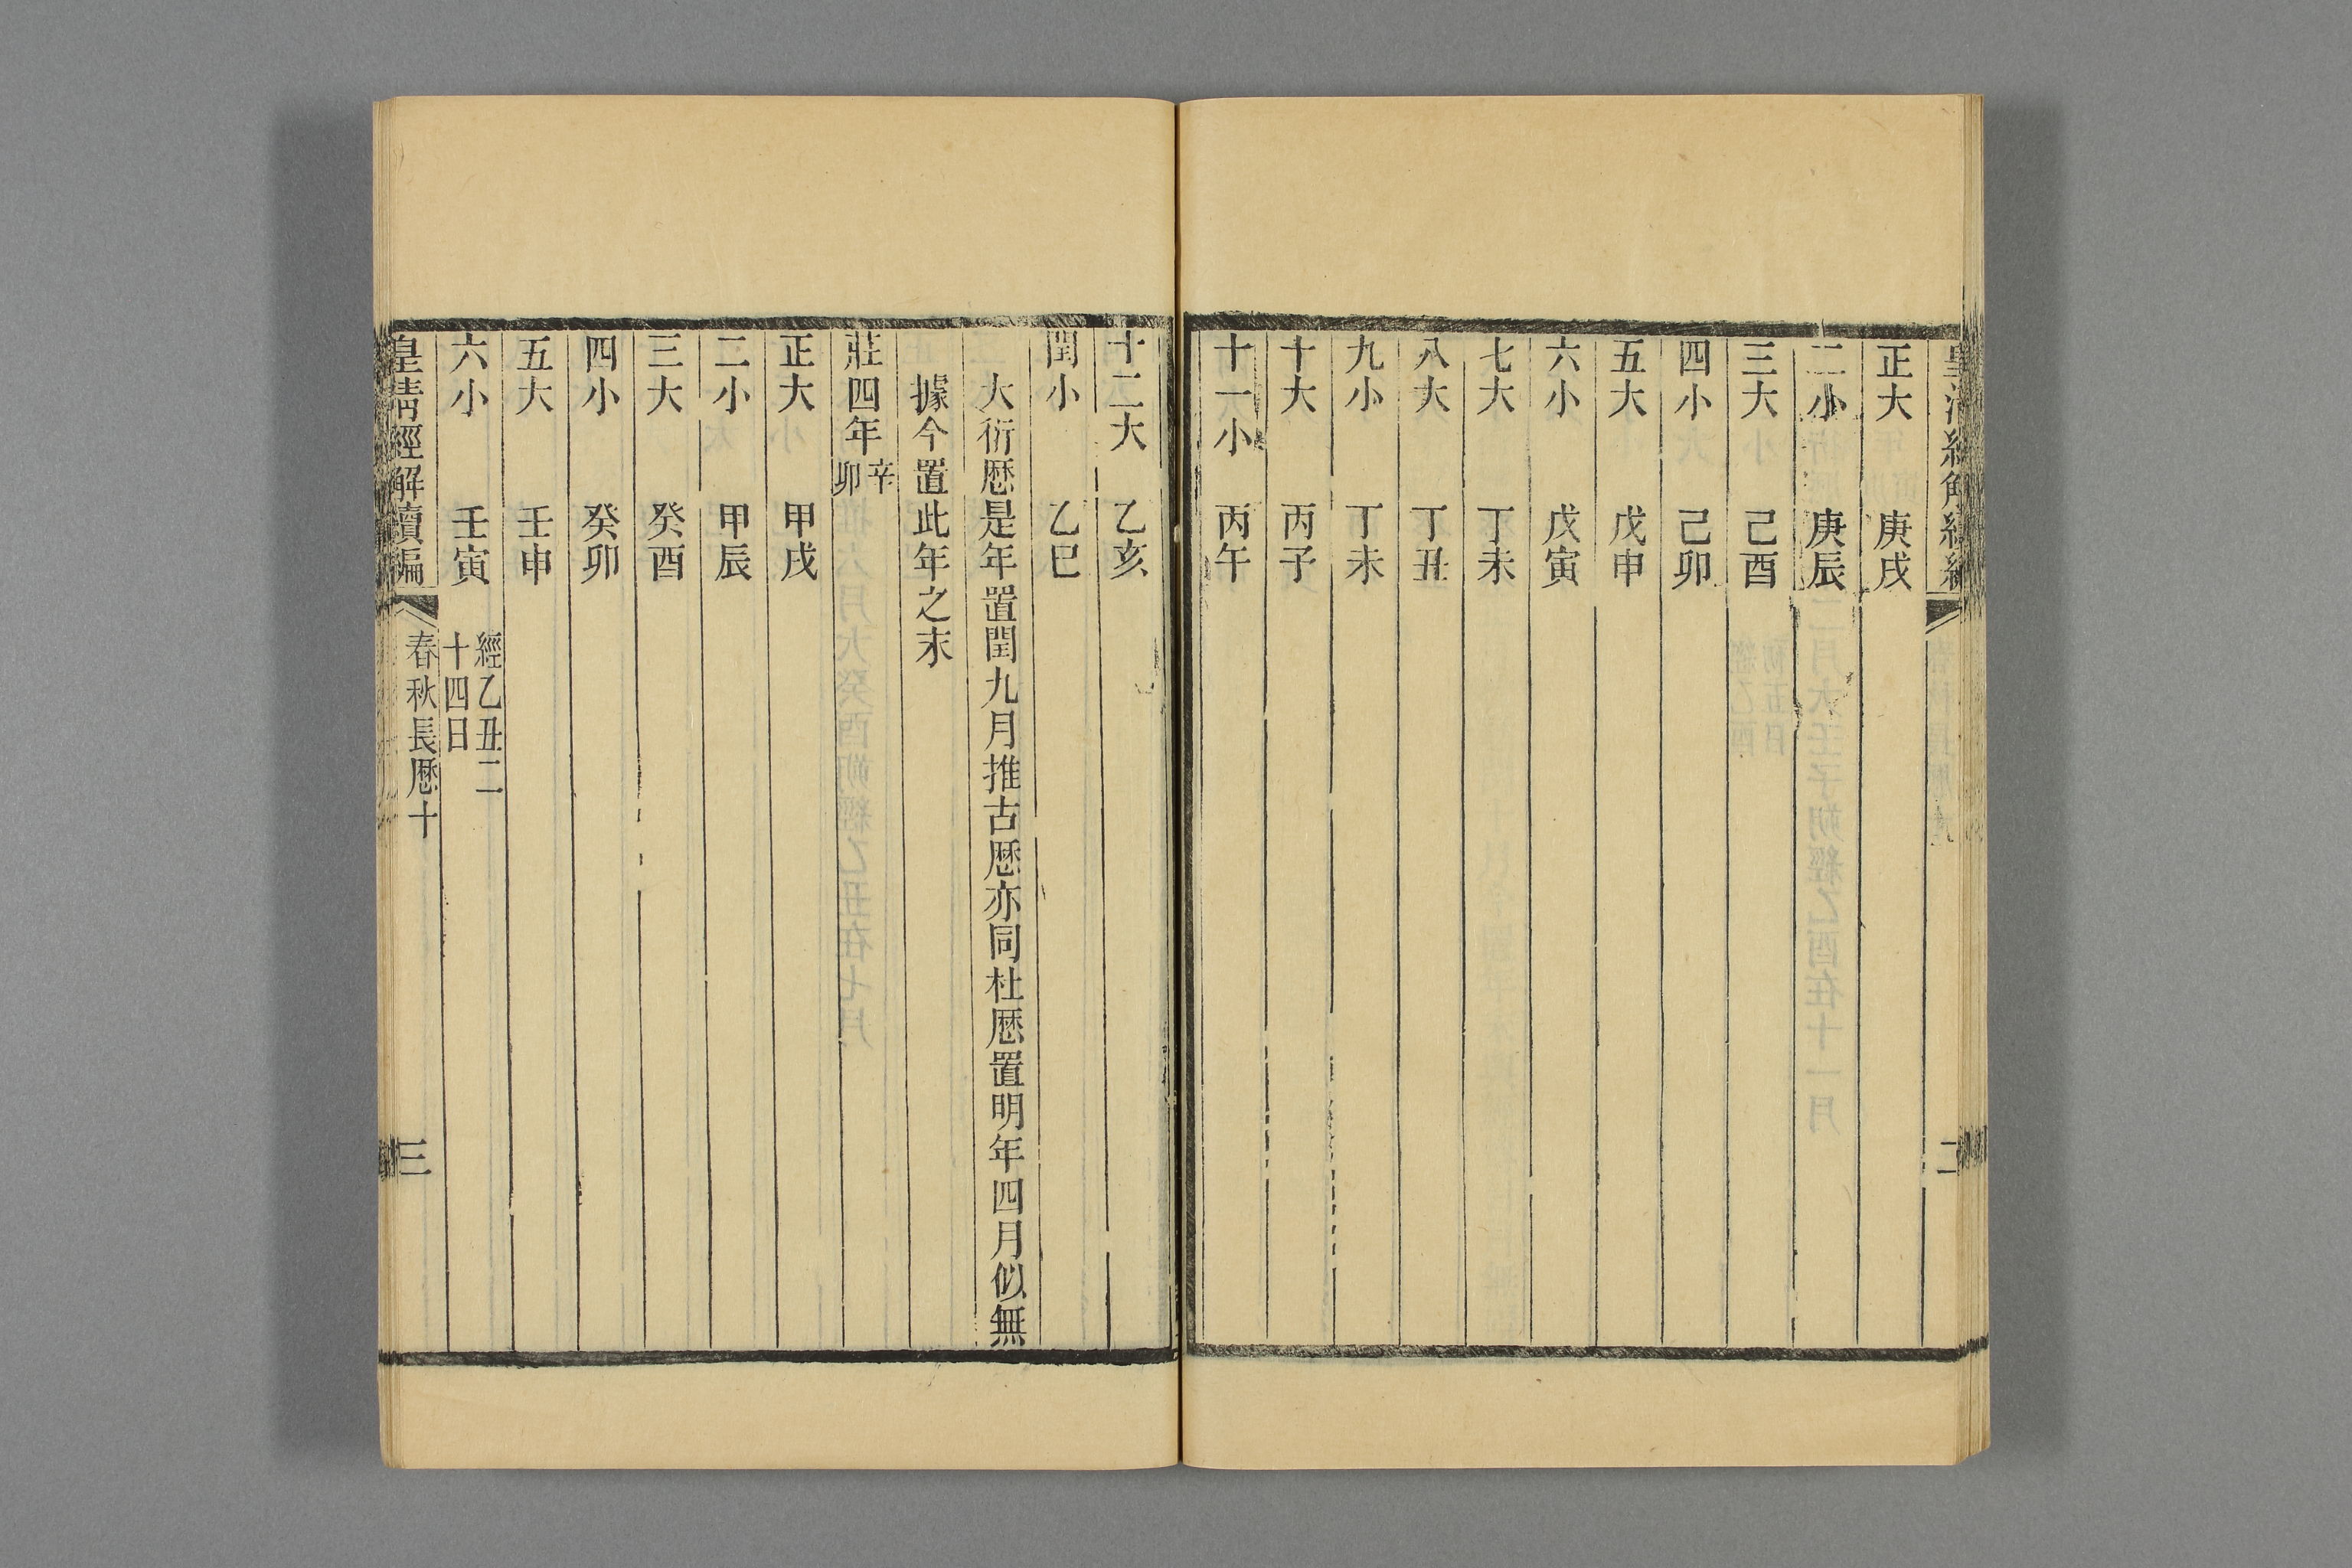 正大 庚戌
二小 庚辰
三大 己酉
四小 己卯
五大 戊申
六小 戊寅
七大 丁未
八大 丁丑
九小 丁未
十大 丙子
十一小 丙午
十二大 乙亥
閏小 乙巳
大衍厯是年置閏九月推古厯亦同杜厯置明年四月似無
據今置此年之末
莊四年辛卯
正大 甲戌
二小 甲辰
三大 癸酉
四小 癸卯
五大 壬申
六小 壬寅 經乙丑二
十四日
皇清經解續編 春秋長厯十 三